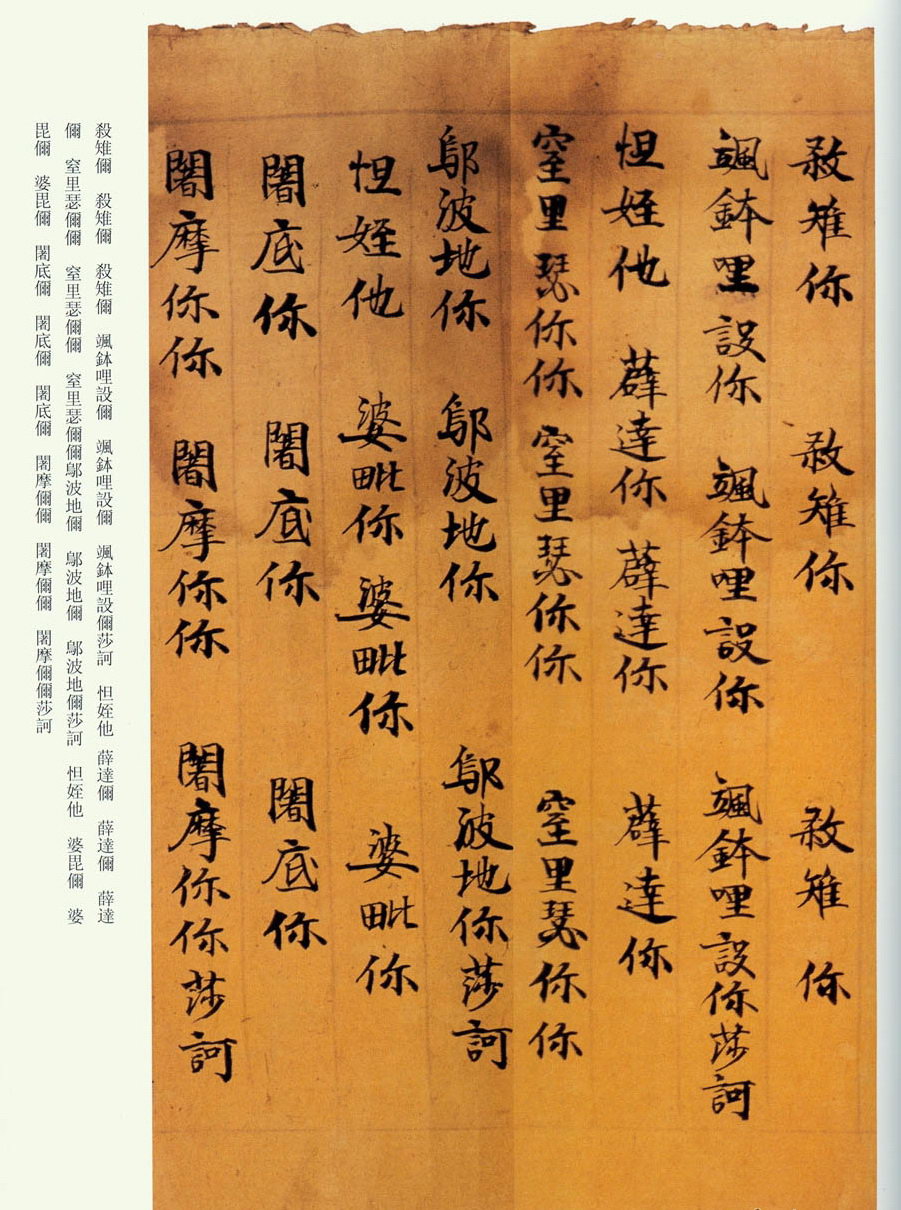 敹雉你 敹雉你 敹雉你
颯鉢哩設你 颯鉢哩設你 颯鉢哩設你莎訶
怛姪他 薜達你 薜達你 薜達你
窒里瑟你你 窒里瑟你你 窒里瑟你你
鄔波地你 鄔波地你 鄔波地你莎訶
怛姪他 婆毗你 婆毗你 婆毗你
闍底你 闍底你 闍底你
闍摩你你 闍摩你你 闍摩你你莎訶
殺雉儞 殺雉儞 殺雉儞 颯鉢哩設儞 颯鉢哩設儞 颯鉢哩設儞莎訶 怛姪他 薛達儞 薛達儞 薛達
儞 窒里瑟儞儞 窒里瑟儞儞 窒里瑟儞儞鄔波地儞 鄔波地儞 鄔波地儞莎訶 怛姪他 婆毘儞 婆
毘儞 婆毘儞 闍底儞 闍底儞 闍底儞 闍摩儞儞 闍摩儞儞 闍摩儞儞莎訶